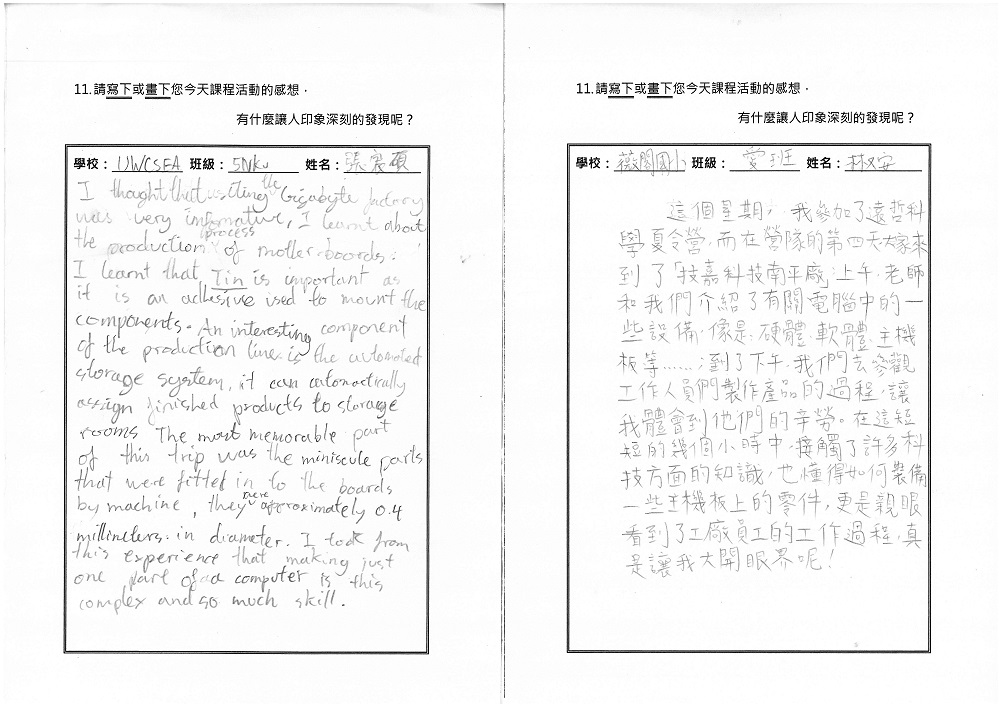 11.請寫下或畫下您今天課程活動的感想，
有什麼讓人印象深刻的發現呢？
學校： UWCSEA 班級： 5Nku 姓名： 張宸碩
I thought that visiting the Gigabyte factory
was very informative, I learnt about
the production process of motherboards.
I learnt that Tin is important as
it is an adhesive used to mount the
components. An interesting component
of the production line is the automated
storage system, it can automatically
assign finished products to storage
rooms. The most memorable part
of this trip was the miniscule parts
that were fitted in to the boards
by machine, they were approximately 0.4
millimeters in diameter. I took from
this experience that making just
one part of a computer is this
complex and so much skill.
11.請寫下或畫下您今天課程活動的感想，
有什麼讓人印象深刻的發現呢？
學校： 薇閣國小 班級： 愛班 姓名： 林安
這個星期，我參加了遠哲科
學夏令營，而在營隊的第四天大家來
到了「技嘉科技南平廠」上午，老師
和我們介紹了有關電腦中的一
些設備，像是：硬體、軟體、主機
板等……；到了下午，我們去參觀
工作人員們製作產品的過程，讓
我體會到他們的辛勞。在這短
短的幾個小時中，接觸了許多科
技方面的知識，也懂得如何裝備
一些主機板上的零件，更是親眼
看到了工廠員工的工作過程，真
是讓我大開眼界呢！